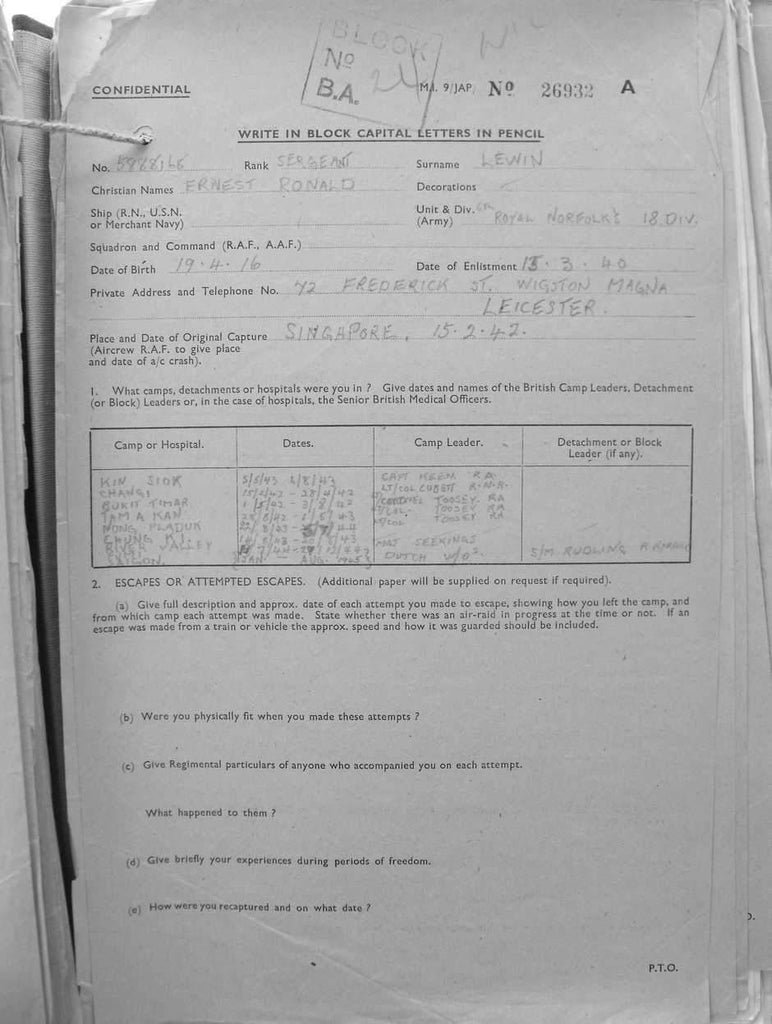 BLOCK
No
B.A. 24
CONFIDENTIAL
M.I. 9/JAP. No 26932 A
WRITE IN BLOCK CAPITAL LETTERS IN PENCIL
No. Rank SERGEANT Surname LEWIN
Christian Names ERNEST RONALD Decorations
Ship (R.N., U.S.N. or Merchant Navy)
Unit & Div. (Army) ROYAL NORFOLK'S 18 DIV.
Squadron and Command (R.A.F., A.A.F.)
Date of Birth 19.4.16 Date of Enlistment 15.3.40
Private Address and Telephone No. 42 FREDERICK ST. WIGSTON MAGNA
LEICESTER.
Place and Date of Original Capture SINGAPORE, 15.2.42.
(Aircrew R.A.F. to give place
and date of a/c crash).
1. What camps, detachments or hospitals were you in ? Give dates and names of the British Camp Leaders, Detachment
(or Block) Leaders or, in the case of hospitals, the Senior British Medical Officers.
Camp or Hospital. Dates. Camp Leader. Detachment or Block
Leader (if any).
KIN SIOK 5/5/43 CAPT KEEN R.A.
CHANGI LT/COL
BUKIT TIMAR TOOSEY. RA
TAMAKAN TOOSEY RA
NONG PLADUK TOOSEY RA
CHUNG KI. MAJ SEEKINGS
RIVER VALLEY DUTCH W/O's. S/M RUDLING
SAIGON. JAN - AUG. 1945
2. ESCAPES OR ATTEMPTED ESCAPES. (Additional paper will be supplied on request if required).
(a) Give full description and approx. date of each attempt you made to escape, showing how you left the camp, and
from which camp each attempt was made. State whether there was an air-raid in progress at the time or not. If an
escape was made from a train or vehicle the approx. speed and how it was guarded should be included.
(b) Were you physically fit when you made these attempts ?
(c) Give Regimental particulars of anyone who accompanied you on each attempt.
What happened to them ?
(d) Give briefly your experiences during periods of freedom.
(e) How were you recaptured and on what date ?
P.T.O.